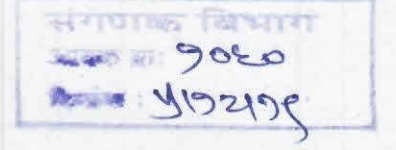 संगणक विभाग
आवक क्र: १०६०
: ५/१२/१९